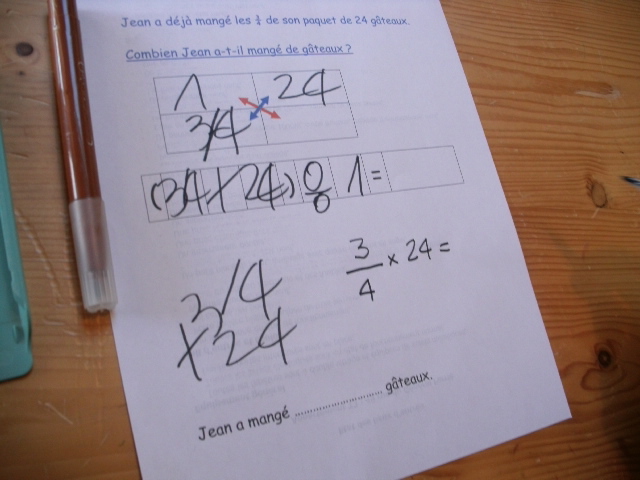 Jean a déjà mangé les ¾ de son paquet de 24 gâteaux.
Combien Jean a-t-il mangé de gâteaux ?
1 24
3/4
(34 x 24) 0/0 1 =
3/4 x 24 =
3/4
x 24
Jean a mangé .............................. gâteaux.